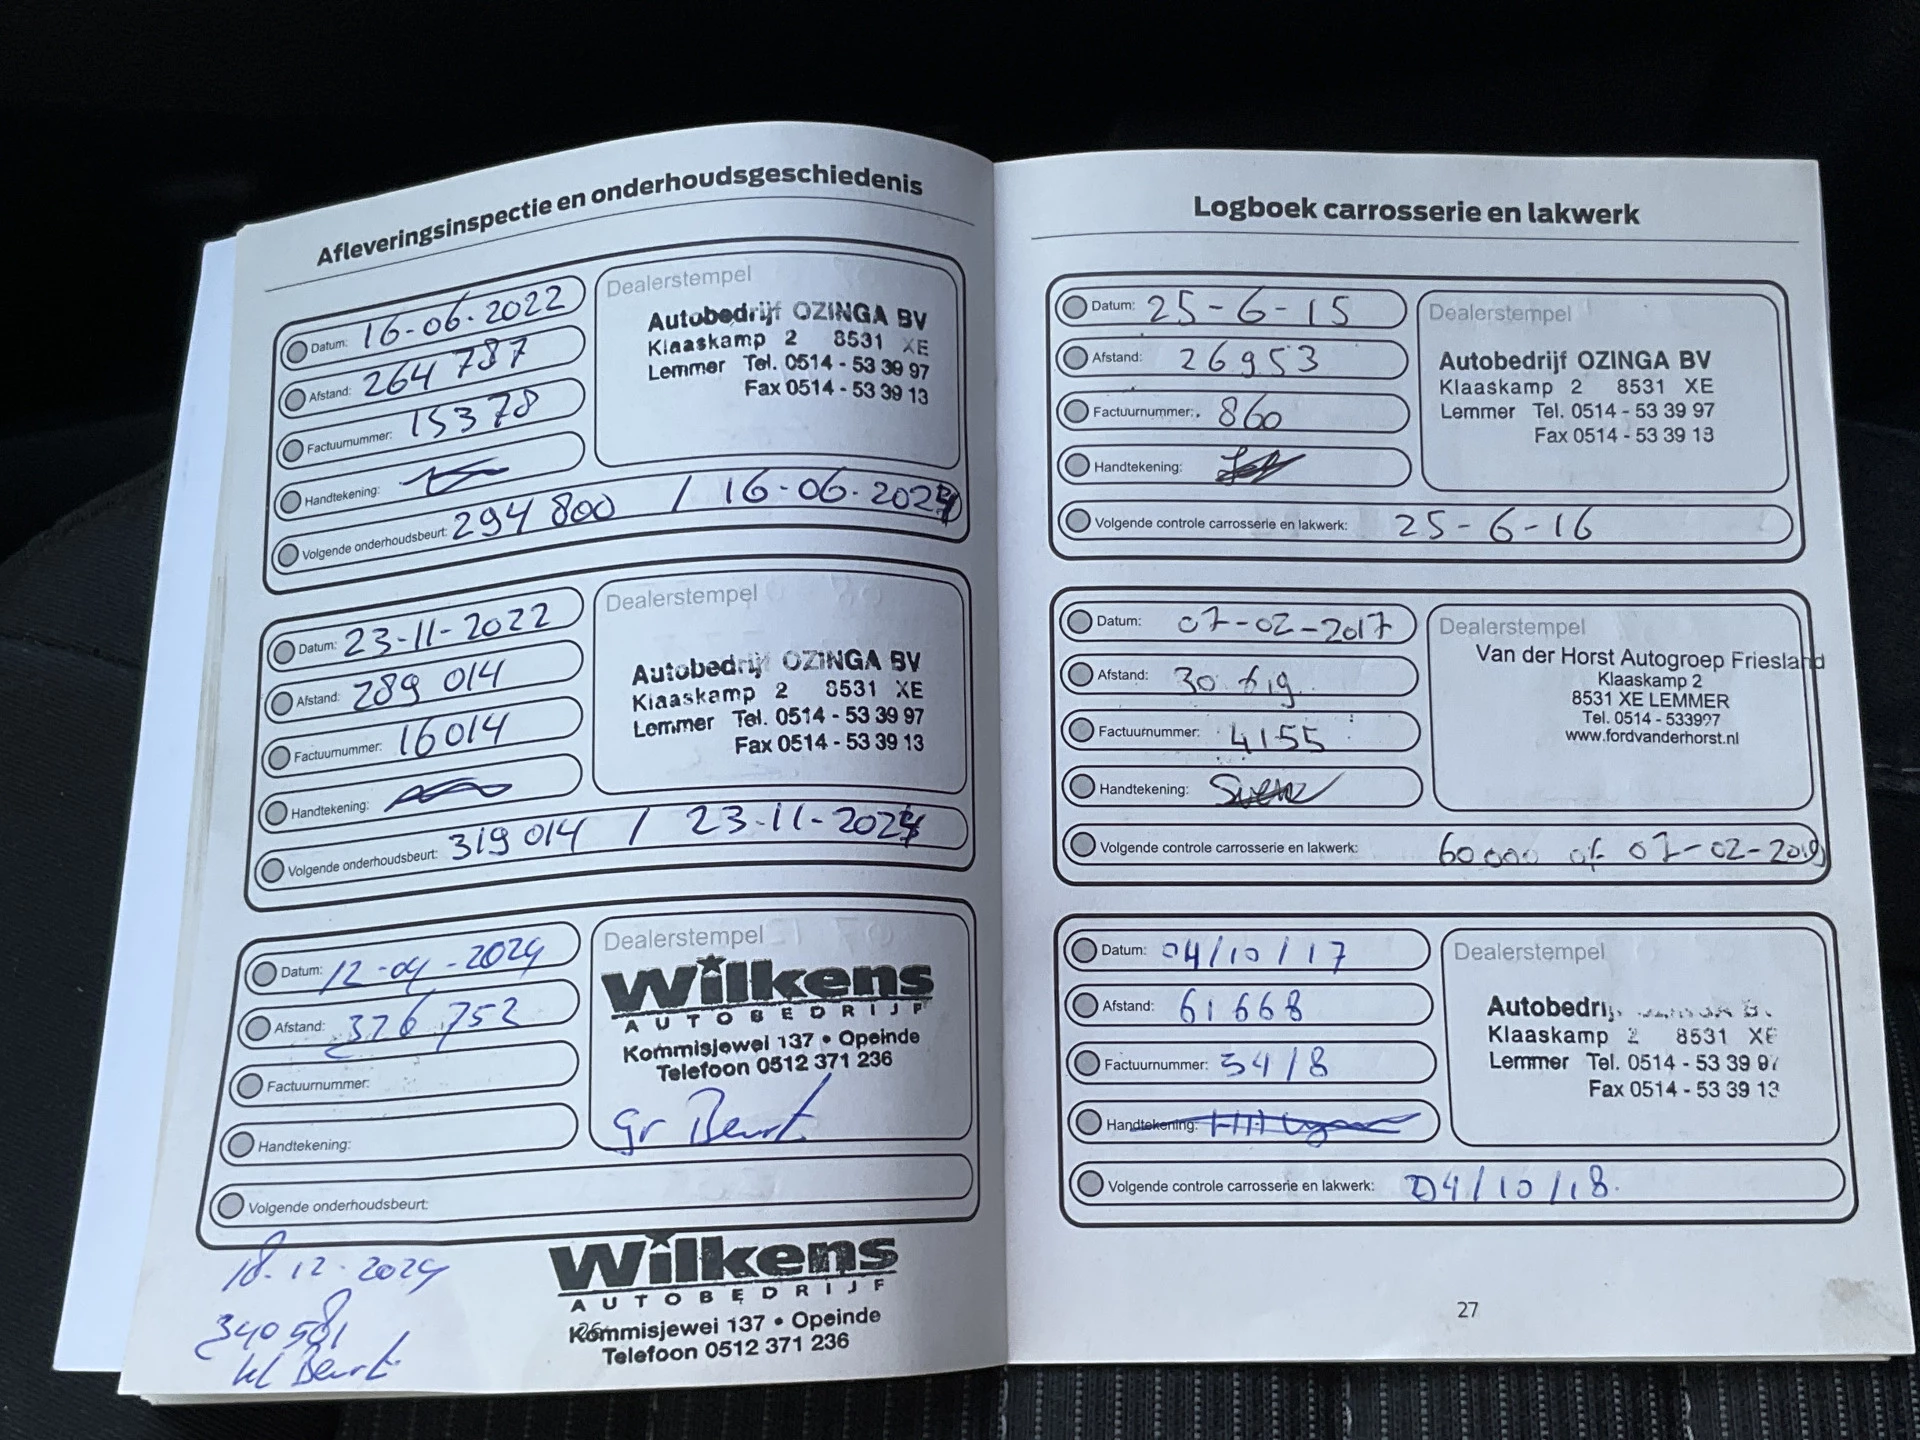 Afleveringsinspectie en onderhoudsgeschiedenis
Datum: 16-06-2022
Afstand: 264 787
Factuurnummer: 15378
Handtekening:
Volgende onderhoudsbeurt: 294 800 / 16-06-2024
Dealerstempel
Autobedrijf OZINGA BV
Klaaskamp 2 8531 XE
Lemmer Tel. 0514 - 53 39 97
Fax 0514 - 53 39 13
Datum: 23-11-2022
Afstand: 289 014
Factuurnummer: 16014
Handtekening:
Volgende onderhoudsbeurt: 319 014 / 23-11-2024
Dealerstempel
Autobedrijf OZINGA BV
Klaaskamp 2 8531 XE
Lemmer Tel. 0514 - 53 39 97
Fax 0514 - 53 39 13
Datum: 12-04-2024
Afstand: 326 752
Factuurnummer:
Handtekening:
Volgende onderhoudsbeurt:
Dealerstempel
Wilkens
AUTOBEDRIJF
Kommisjewei 137 • Opeinde
Telefoon 0512 371 236
gr Beurt
18-12-2024
340 581
kl Beurt
Wilkens
AUTOBEDRIJF
Kommisjewei 137 • Opeinde
Telefoon 0512 371 236
26
Logboek carrosserie en lakwerk
Datum: 25-6-15
Afstand: 26953
Factuurnummer: 860
Handtekening:
Volgende controle carrosserie en lakwerk: 25-6-16
Dealerstempel
Autobedrijf OZINGA BV
Klaaskamp 2 8531 XE
Lemmer Tel. 0514 - 53 39 97
Fax 0514 - 53 39 13
Datum: 07-02-2017
Afstand:
Factuurnummer: 4155
Handtekening:
Volgende controle carrosserie en lakwerk: 60000 of 07-02-2019
Dealerstempel
Van der Horst Autogroep Friesland
Klaaskamp 2
8531 XE LEMMER
Tel. 0514 - 533997
www.fordvanderhorst.nl
Datum: 04/10/17
Afstand: 61668
Factuurnummer: 5418
Handtekening:
Volgende controle carrosserie en lakwerk: 04/10/18.
Dealerstempel
Autobedrij
Klaaskamp 2 8531 XE
Lemmer Tel. 0514 - 53 39 97
Fax 0514 - 53 39 13
27